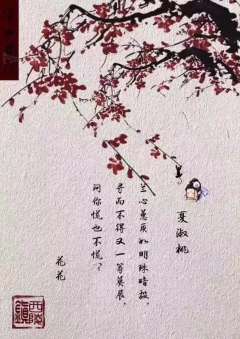 夏淑桃
兰心蕙质如明珠暗投，
寻而不得又一筹莫展，
问你慌也不慌？
花花